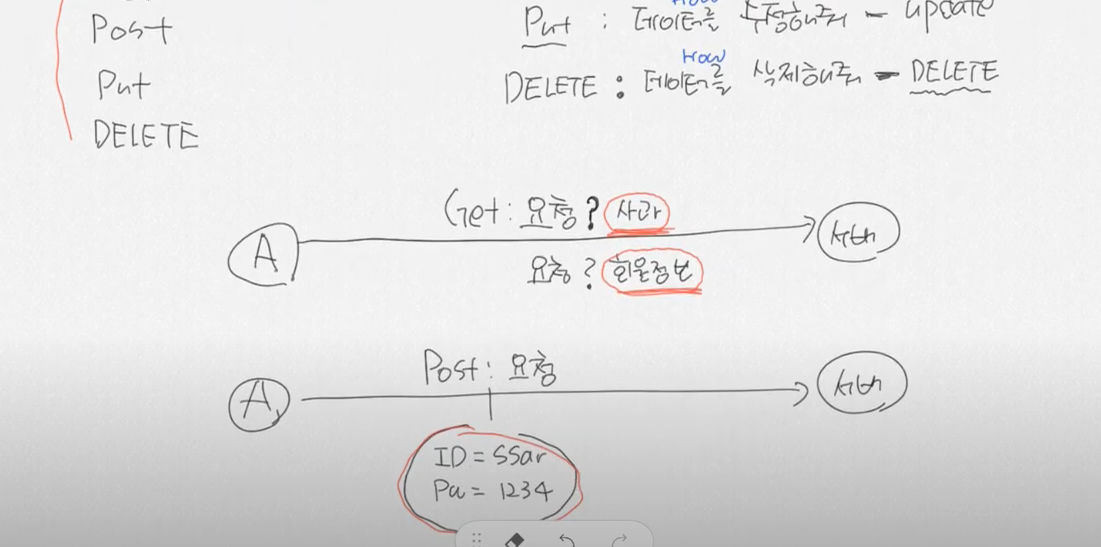 Post
Put
DELETE
How
Put : 데이터를 수정해줘 - update
How
DELETE : 데이터를 삭제해줘 - DELETE
Get : 요청 ? 사과
A
서버
요청 ? 회원정보
Post : 요청
A
서버
ID = SSar
Pw = 1234